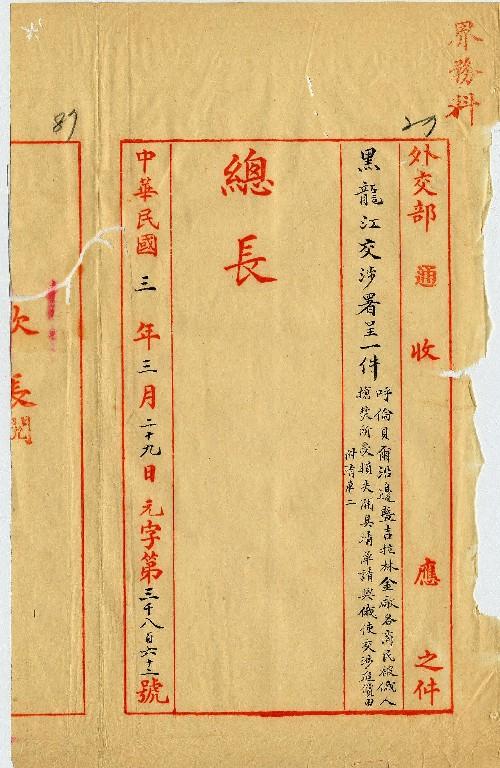 界務科
29
外交部通收應之件
黑龍江交涉署呈一件
呼倫貝爾沿邊暨吉拉林金廠各商民被俄人
搶焚所受損失開具清單請與俄使交涉追償由
附清單二
總長
中華民國三年三月二十九日元字第三千八百六十二號
87
次長閱